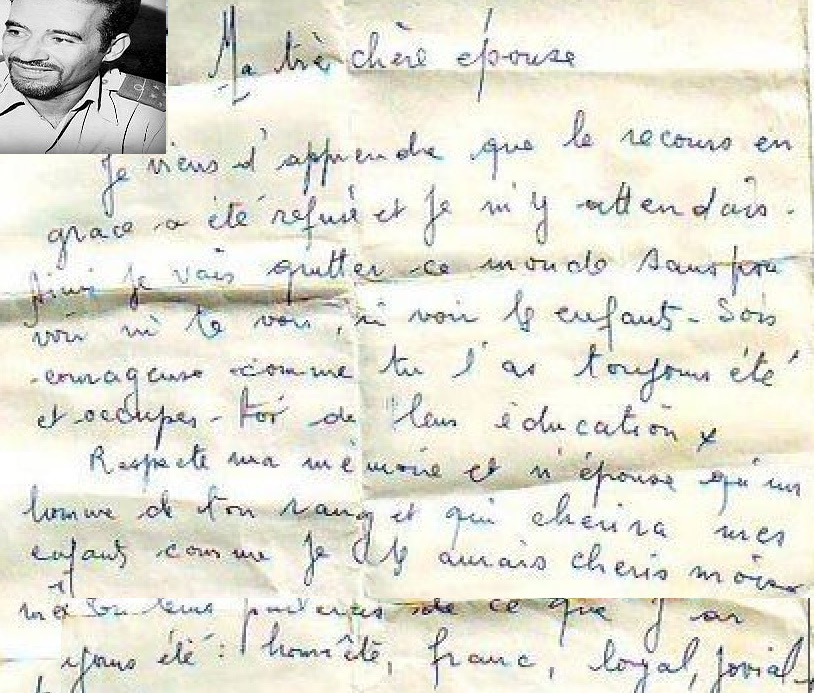 Ma très chère épouse
Je viens d'apprendre que le recours en
grace a été refusé et Je m'y attendais.
Ainsi je vais quitter ce monde sans pou
voir ni te voir, ni voir les enfants - Sois
courageuse comme tu l'as toujours été
et occupes-toi de leur éducation
Respecte ma mémoire et n'épouse qu'un
homme de ton rang et qui cherira mes
enfants comme Je les aurais cheris moi
de ce que j'ai
été : honnête, franc, loyal, jovial